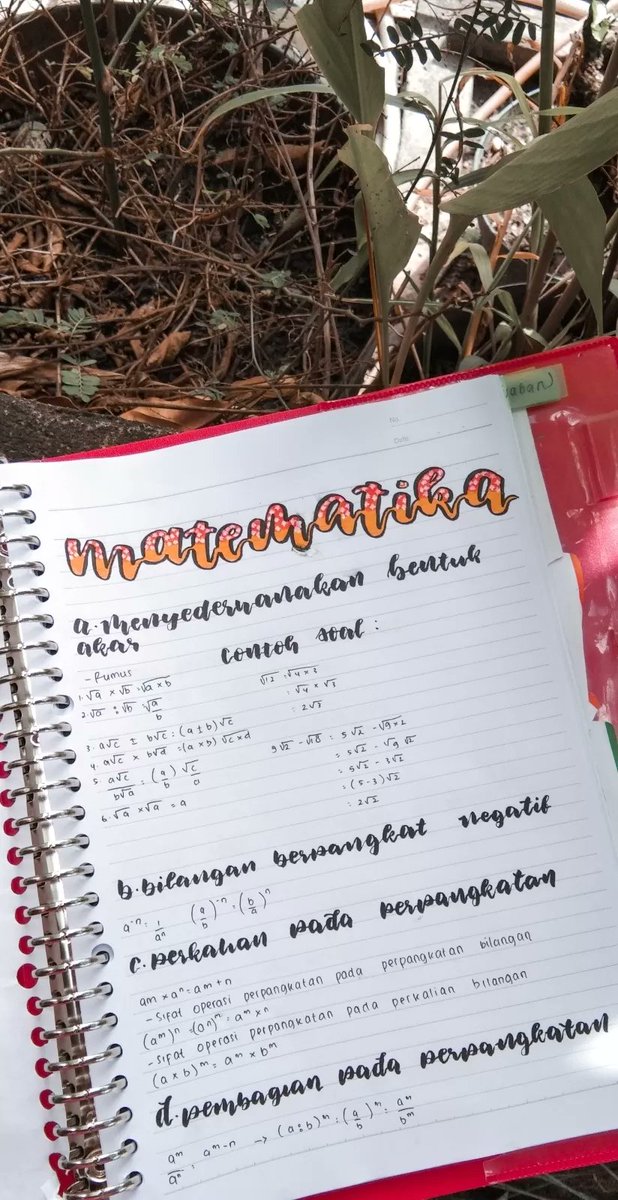 (aban)
No.
Date
matematika
a. menyederhanakan bentuk
akar
contoh soal :
- Rumus
1. √a × √b = √a × b
2. √a : √b = √a/b
3. a√c ± b√c : (a ± b) √c
4. a√c × b√d = (a × b) √c × d
5. a√c / b√a = (a/b) √c/a
6. √a × √a = a
√12 = √4 × 3
= √4 × √3
= 2√3
5√2 - √18 : 5√2 - √9 × 2
= 5√2 - √9 √2
= 5√2 - 3√2
= (5 - 3) √2
: 2√2
b. bilangan berpangkat negatif
a⁻ⁿ = 1/aⁿ (a/b)⁻ⁿ = (b/a)ⁿ
c. perkalian pada perpangkatan
am × aⁿ = am + n
- Sifat operasi perpangkatan pada perpangkatan bilangan
(aᵐ)ⁿ = (aⁿ)ᵐ = aᵐ × ⁿ
- Sifat operasi perpangkatan pada perkalian bilangan
(a × b)ᵐ = aᵐ × bᵐ
d. pembagian pada perpangkatan
aᵐ/aⁿ = aᵐ⁻ⁿ → (a : b)ᵐ : (a/b)ᵐ = aᵐ/bᵐ